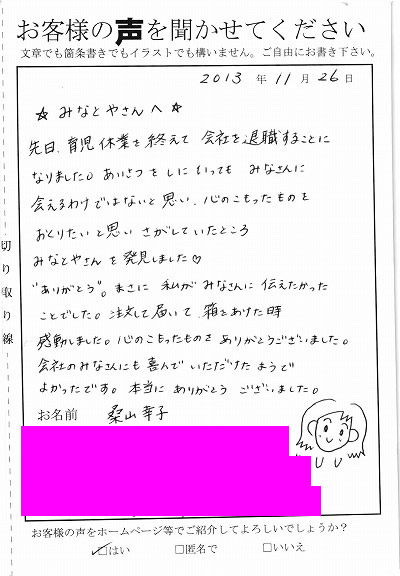 お客様の声を聞かせてください
文章でも箇条書きでもイラストでも構いません。ご自由にお書き下さい。
2013 年 11 月 26 日
☆ みなとやさんへ ☆
先日、育児休業を終えて 会社を退職することに
なりました。あいさつをしにいっても みなさんに
会えるわけではないと思い、心のこもったものを
おくりたいと思い さがしていたところ
みなとやさんを発見しました♡
"ありがとう"。まさに 私がみなさんに伝えたかった
ことでした。注文して届いて、箱をあけた時
感動しました。心のこもったものを ありがとうございました。
会社のみなさんにも喜んでいただけたようで
よかったです。本当に ありがとう ございました。
お名前 桑山幸子
お客様の声をホームページ等でご紹介してよろしいでしょうか？
☑はい □匿名で □いいえ
切り取り線